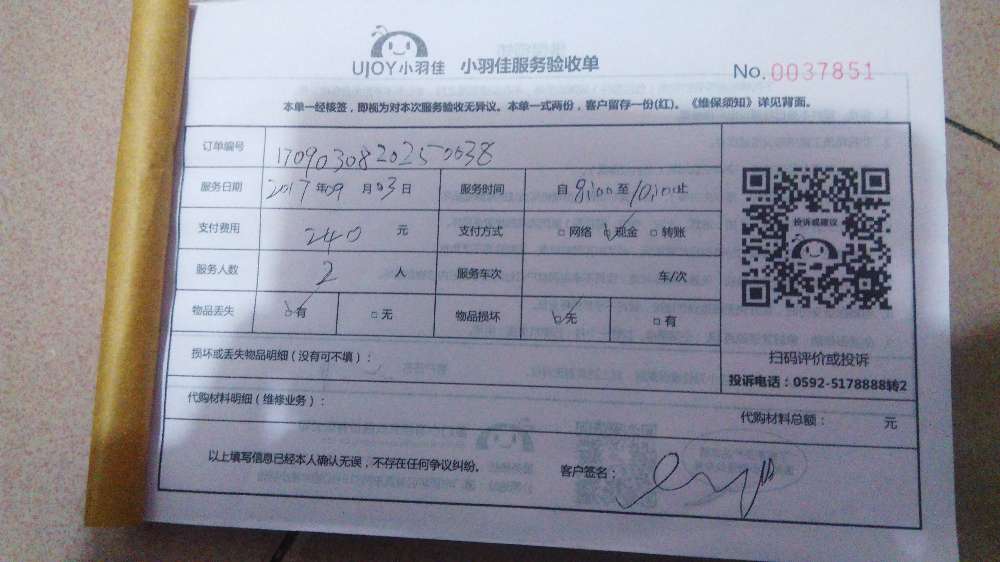 UJOY小羽佳 小羽佳服务验收单
No.0037851
本单一经核签，即视为对本次服务验收无异议。本单一式两份，客户留存一份(红)。《维保须知》详见背面。
订单编号 1709030820250038
服务日期 2017年09月03日 服务时间 自8:00至10:00止
支付费用 240元 支付方式 □网络 □现金 □转账
服务人数 2人 服务车次 车/次
物品丢失 □有 □无 物品损坏 □无 □有
投诉或建议
扫码评价或投诉
投诉电话：0592-5178888转2
损坏或丢失物品明细（没有可不填）：
代购材料明细（维修业务）： 代购材料总额： 元
以上填写信息已经本人确认无误，不存在任何争议纠纷。 客户签名：